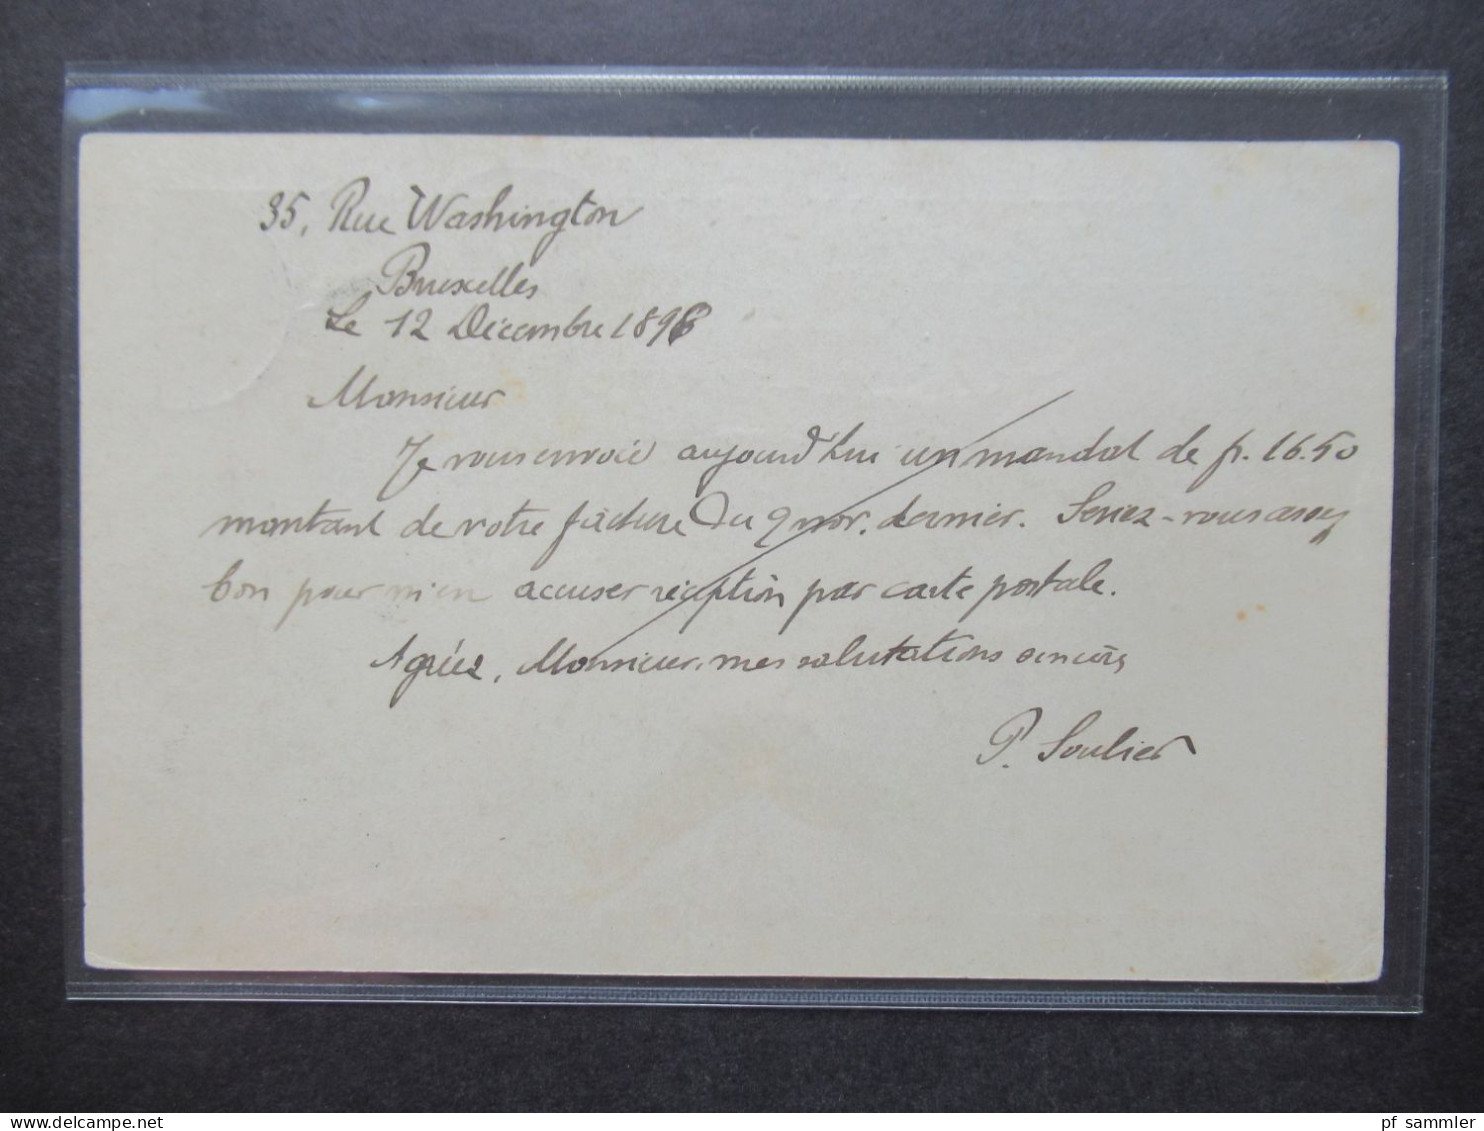 35, Rue Washington
Bruxelles
Le 12 Décembre 1896
Monsieur
Je vous envoie aujourd'hui un mandat de fr. 16.50
montant de votre facture du 9 nov. dernier. Serez-vous assez
bon pour m'en accuser réception par carte postale.
Agréez, Monsieur, mes salutations sincères
P. Soulier
pf sammler